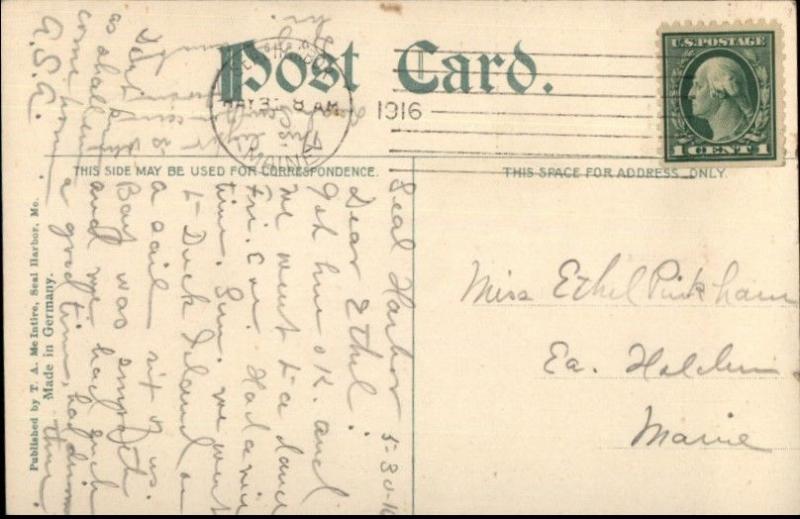 Post Card.
SEAL HARBOR
MAY 31 8 AM
1916
MAINE
U.S. POSTAGE
1 CENT 1
THIS SIDE MAY BE USED FOR CORRESPONDENCE.
THIS SPACE FOR ADDRESS ONLY.
Published by T. A. McIntire, Seal Harbor, Me.
Made in Germany.
Seal Harbor 5-30-16
Dear Ethel:
Got here O.K. and
we went to a dance
Fri. eve. Had a nice
time. Sun. we went
to Duck Island on
a sail six of us.
Bay was smooth
and we had such
a good time, had dinner
there.
as shall
come home
Miss Ethel Pinkham
Ea. Holden
Maine